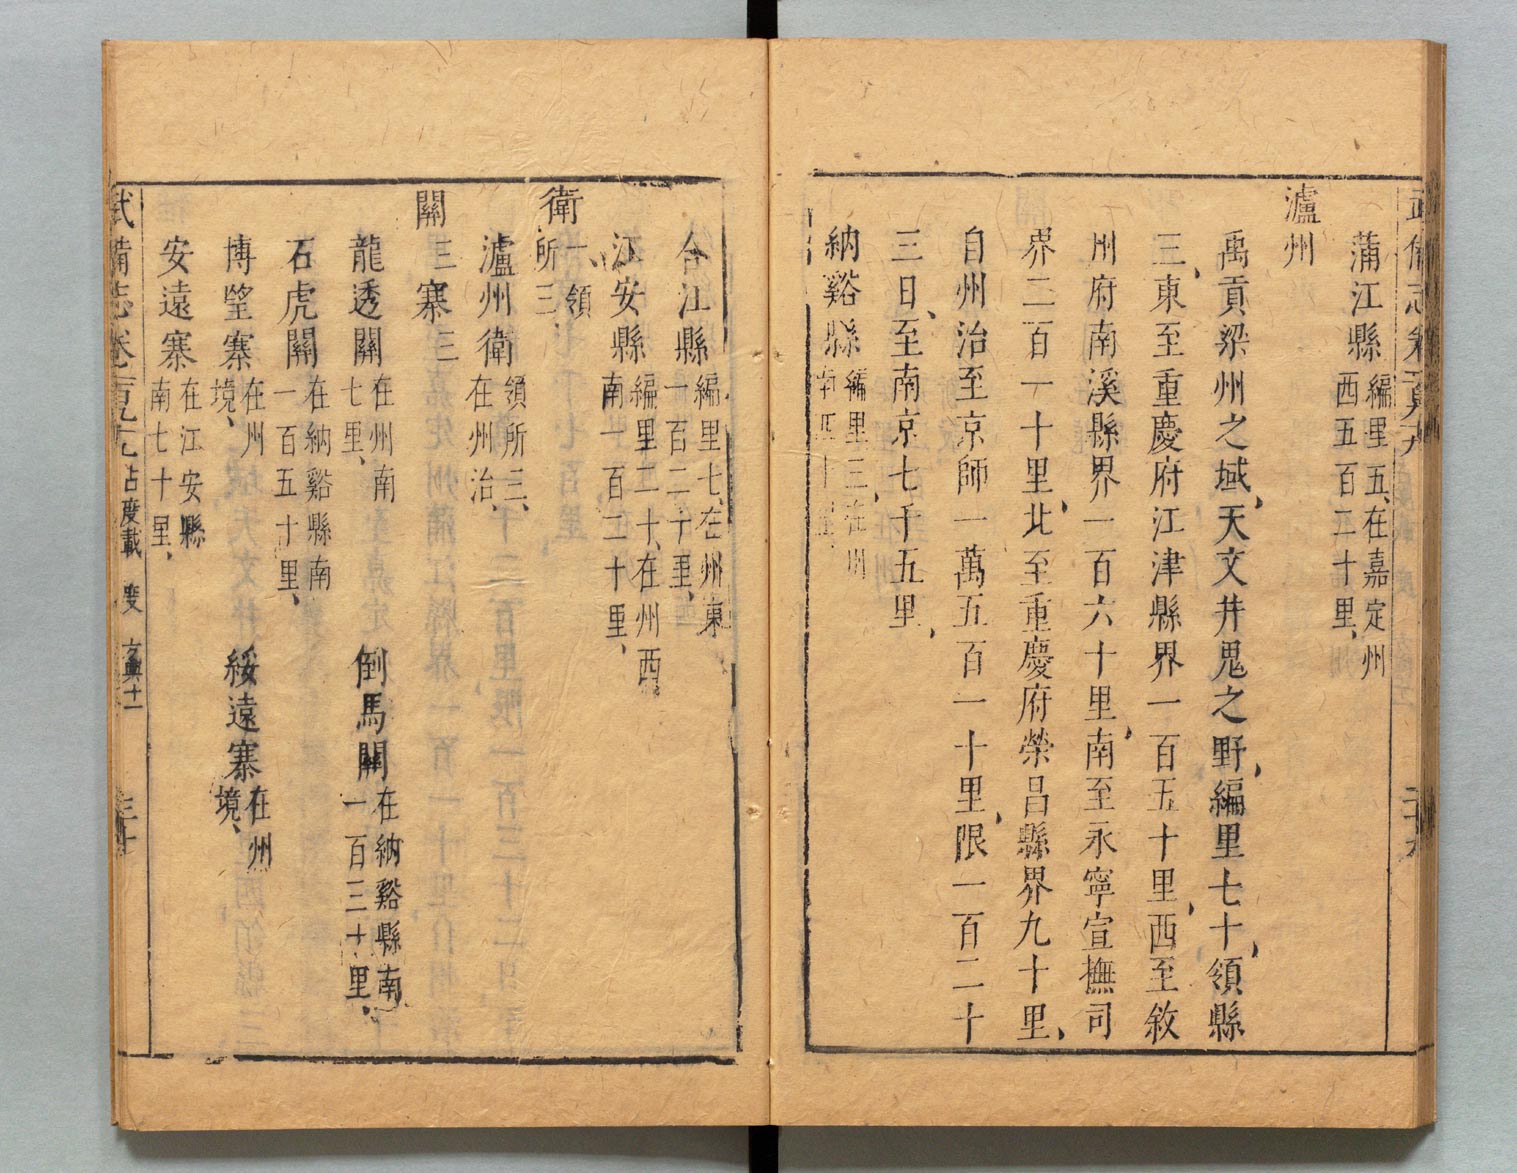 蒲江縣編里五、在嘉定州西五百二十里、
瀘州
禹貢梁州之域、天文井鬼之野、編里七十、領縣
三、東至重慶府江津縣界一百五十里、西至敘
州府南溪縣界一百六十里、南至永寧宣撫司
界二百一十里、北至重慶府榮昌縣界九十里、
自州治至京師一萬五百一十里、限一百二十
三日、至南京七千五里、
納谿縣編里三、在州南四十里、
合江縣編里七、在州東一百二十里、
江安縣編里二十、在州西南一百二十里、
衛一、領所三、
瀘州衛領所三、在州治、
關三寨三
龍透關在州南七里、 倒馬關在納谿縣南一百三十里、
石虎關在納谿縣南一百五十里、
博望寨在州境、 綏遠寨在州境、
安遠寨在江安縣南七十里、
武備志卷 占度載 度 方輿十一 三十